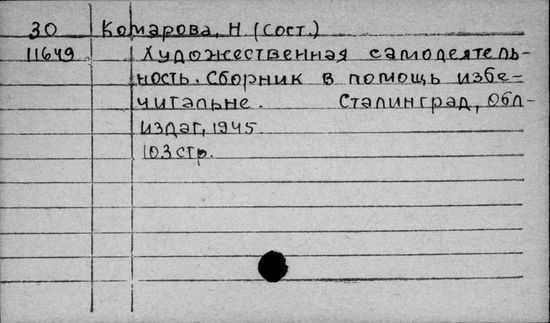 30 Комарова, Н (Сост.)
11649 Художественная самодеятель-
ность. Сборник в помощь избе-
читальне. Сталинград, Обл-
издат, 1945.
103 стр.